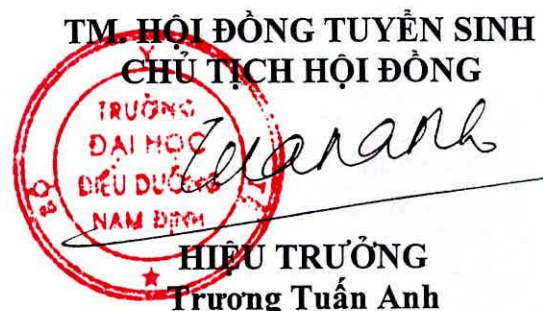 TM. HỘI ĐỒNG TUYỂN SINH
CHỦ TỊCH HỘI ĐỒNG
TRƯỜNG
ĐẠI HỌC
ĐIỀU DƯỠNG
NAM ĐỊNH
Tuananh
HIỆU TRƯỞNG
Trương Tuấn Anh